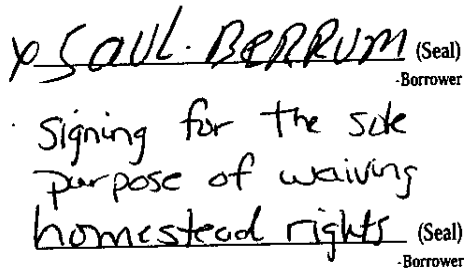 x SAUL. BERRUM (Seal)
-Borrower
Signing for the sole
purpose of waiving
homestead rights (Seal)
-Borrower